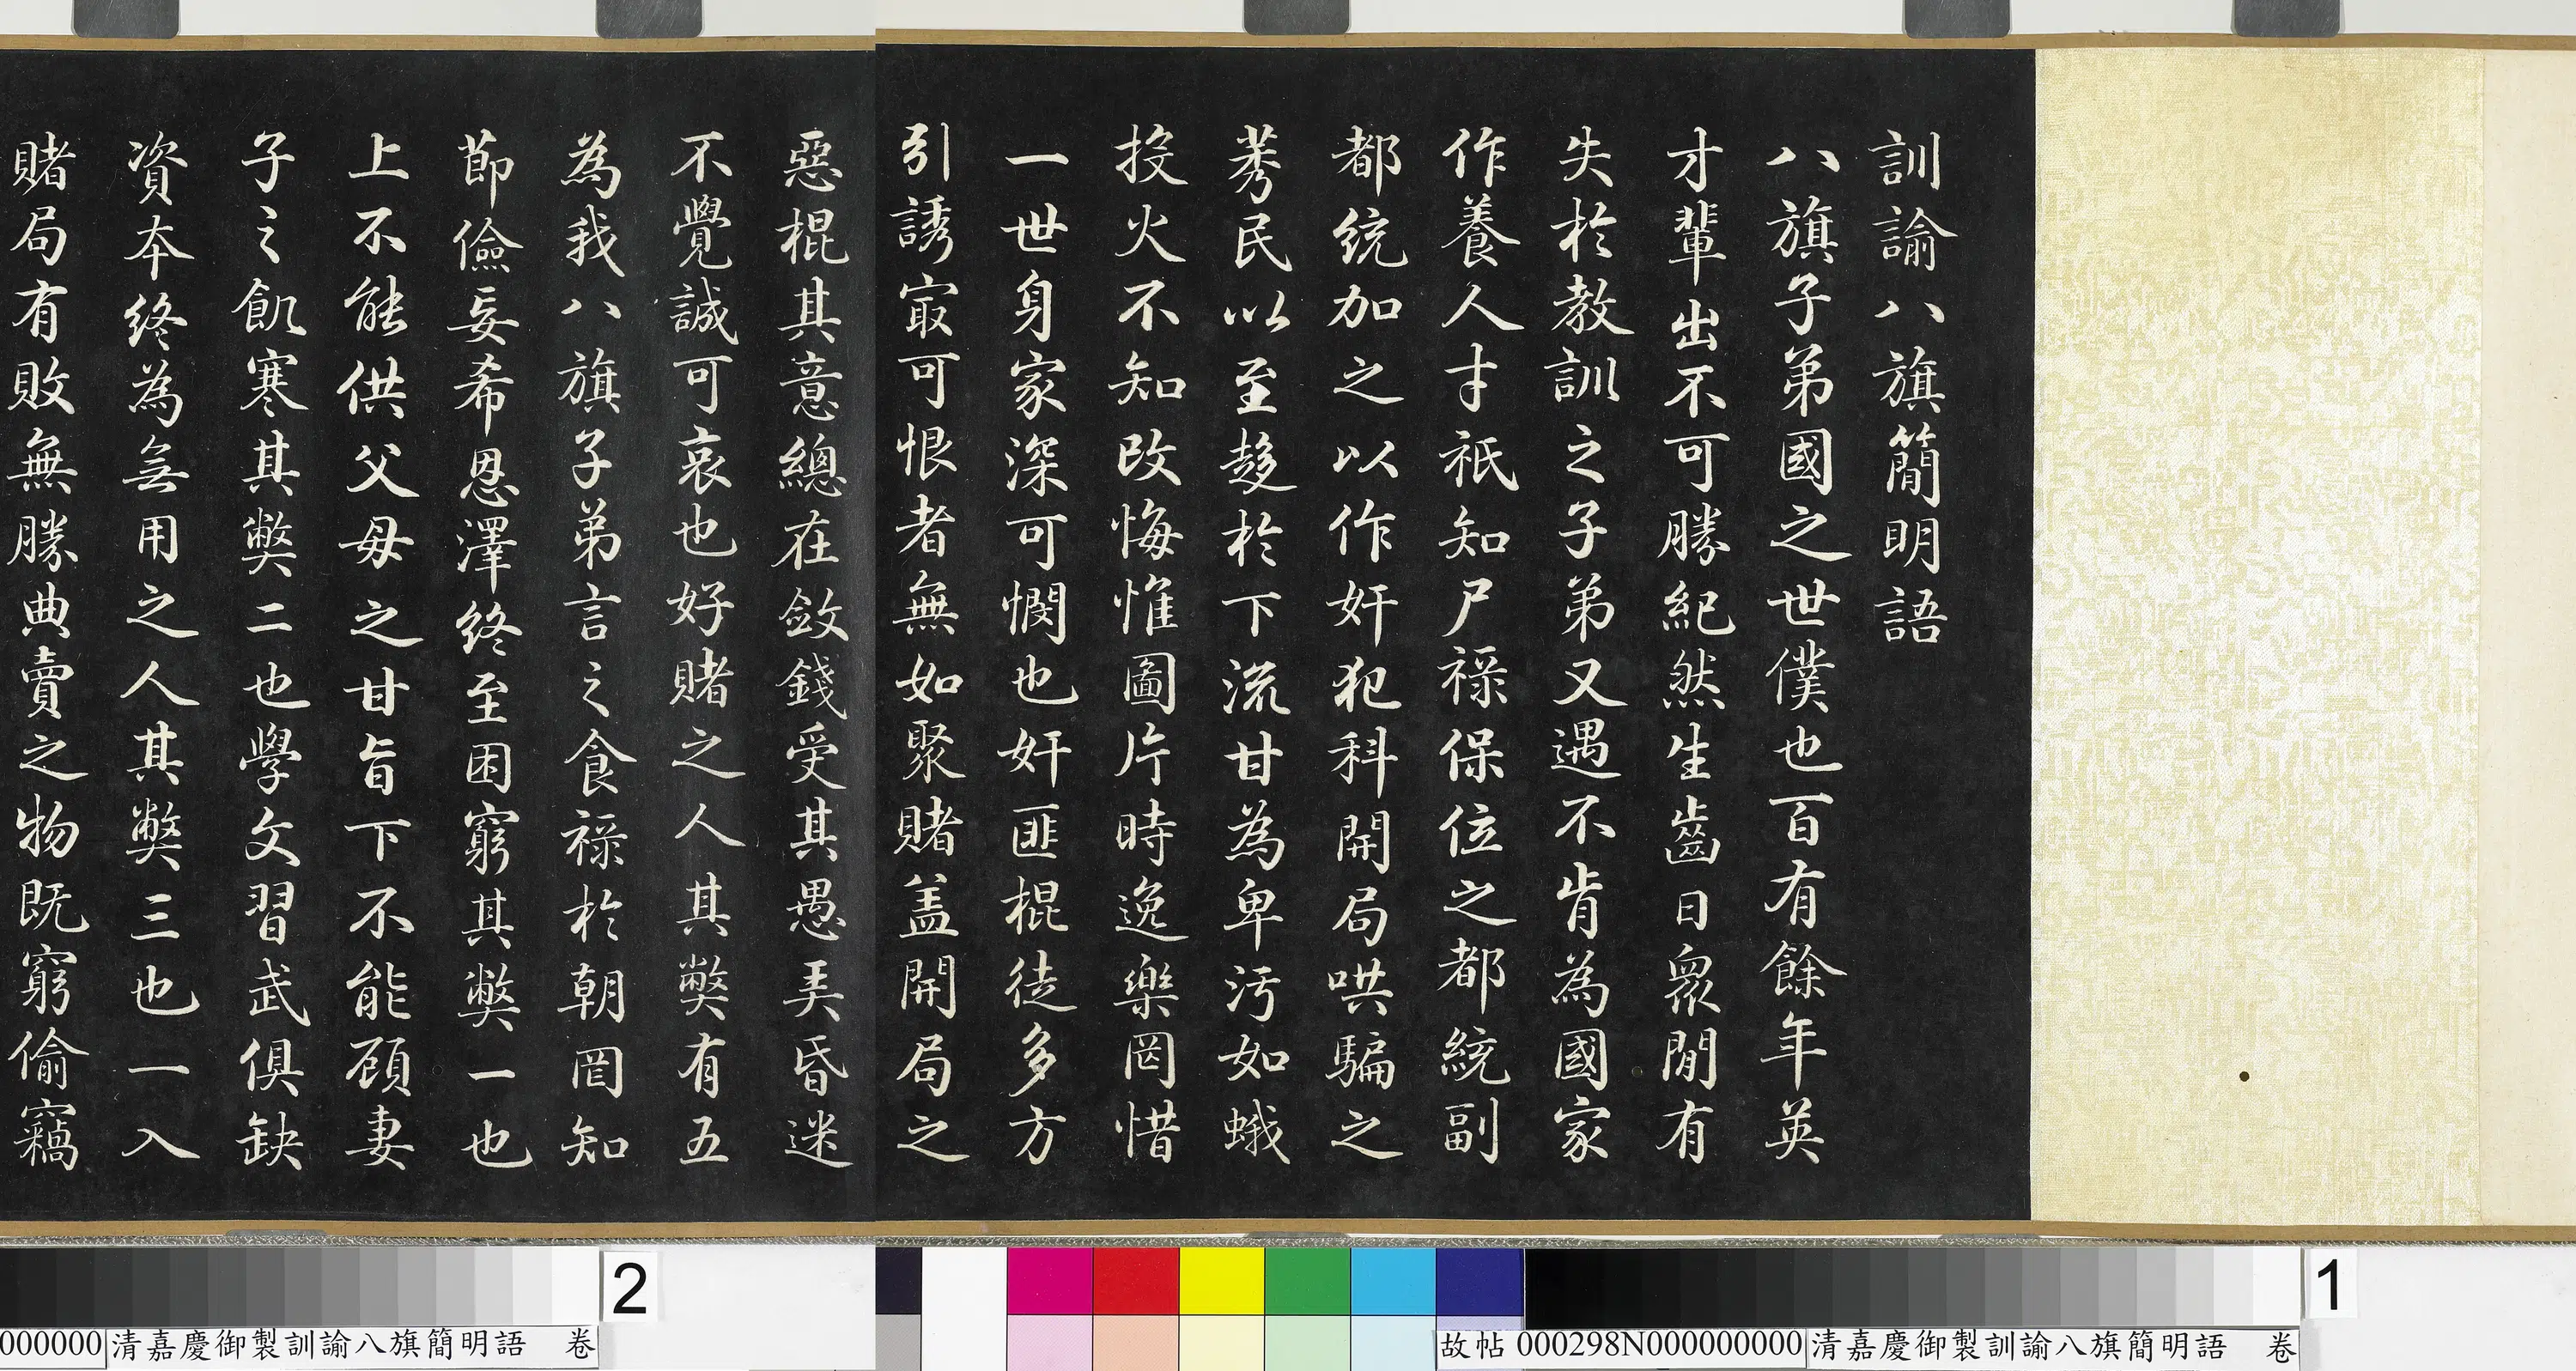 訓諭八旗簡明語
八旗子弟國之世僕也百有餘年英
才輩出不可勝紀然生齒日衆閒有
失於教訓之子弟又遇不肯為國家
作養人才祇知尸祿保位之都統副
都統加之以作奸犯科開局哄騙之
莠民以至趍於下流甘為卑污如蛾
投火不知改悔惟圖片時逸樂罔惜
一世身家深可憫也奸匪棍徒多方
引誘㝡可恨者無如聚賭盖開局之
惡棍其意總在斂錢受其愚弄昏迷
不覺誠可哀也好賭之人其弊有五
為我八旗子弟言之食祿於朝罔知
節儉妄希恩澤終至困窮其弊一也
上不能供父母之甘旨下不能顧妻
子之飢寒其弊二也學文習武俱缺
資本終為無用之人其弊三也一入
賭局有敗無勝典賣之物既窮偷竊
2
1
000000 清嘉慶御製訓諭八旗簡明語 卷
故帖 000298N000000000 清嘉慶御製訓諭八旗簡明語 卷